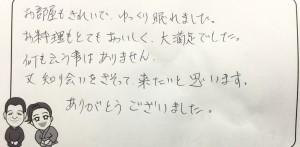 お部屋もきれいで、ゆっくり眠れました。
お料理もとてもおいしく、大満足でした。
何も云う事はありません。
又知り合いをさそって来たいと思います。
ありがとうございました。